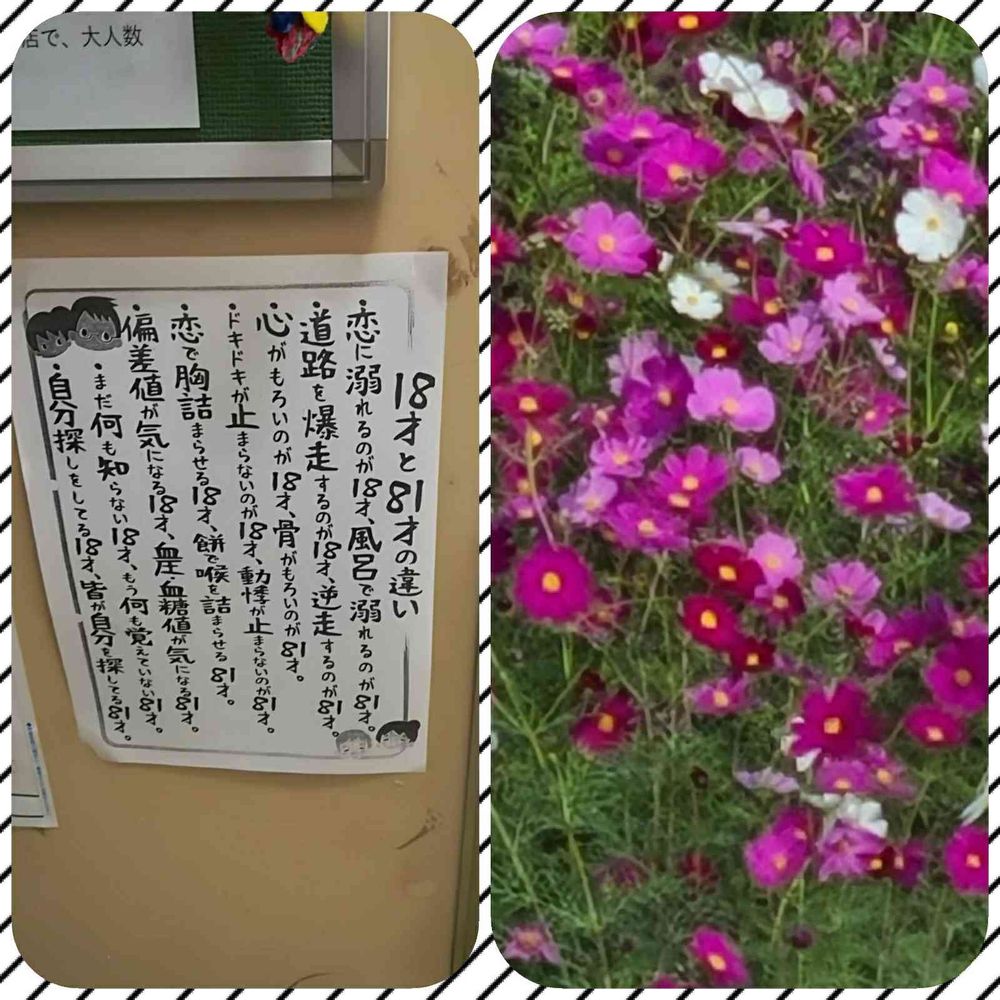 店で、大人数
18才と81才の違い
・恋に溺れるのが18才、風呂で溺れるのが81才。
・道路を爆走するのが18才、逆走するのが81才。
・心がもろいのが18才、骨がもろいのが81才。
・ドキドキが止まらないのが18才、動悸が止まらないのが81才。
・恋で胸詰まらせる18才、餅で喉を詰まらせる81才。
・偏差値が気になる18才、血圧・血糖値が気になる81才。
・まだ何も知らない18才、もう何も覚えていない81才。
・自分探しをしてる18才、皆が自分を探してる81才。